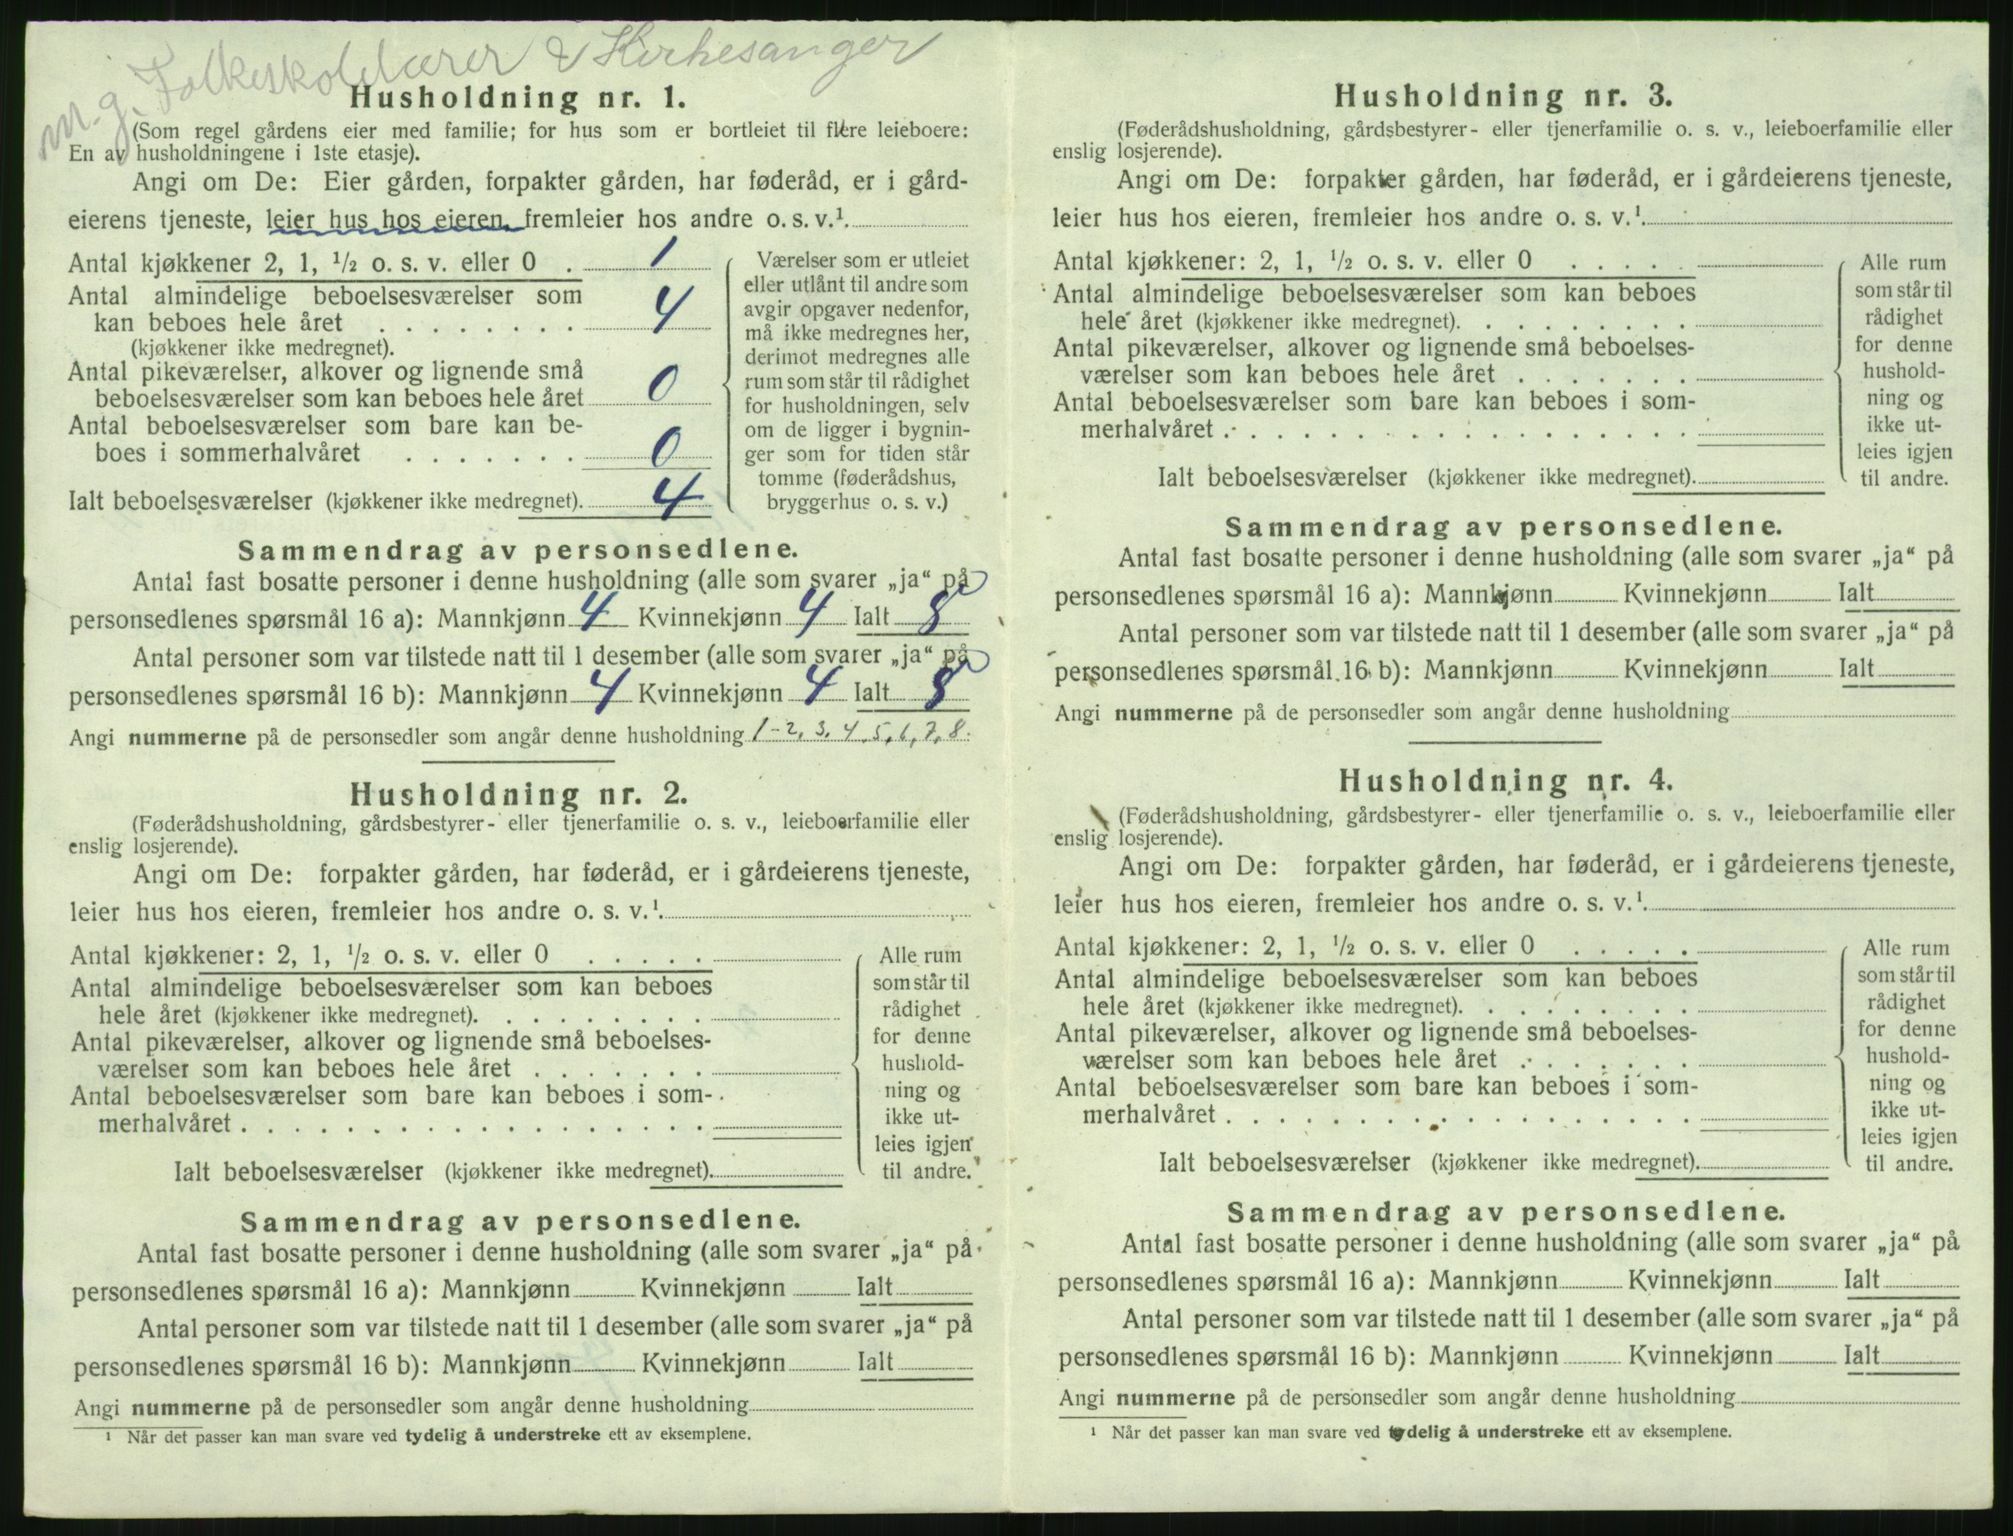 m. g. Folkeskolelærer & Kirkesanger
Husholdning nr. 1.
(Som regel gårdens eier med familie; for hus som er bortleiet til flere leieboere:
En av husholdningene i 1ste etasje).
Angi om De: Eier gården, forpakter gården, har føderåd, er i gård-
eierens tjeneste, leier hus hos eieren, fremleier hos andre o. s. v.¹.
Antal kjøkkener 2, 1, ½ o. s. v. eller 0 . 1
Antal almindelige beboelsesværelser som
kan beboes hele året . . . . . . . . 4
(kjøkkener ikke medregnet).
Antal pikeværelser, alkover og lignende små
beboelsesværelser som kan beboes hele året 0
Antal beboelsesværelser som bare kan be-
boes i sommerhalvåret . . . . . . . 0
Ialt beboelsesværelser (kjøkkener ikke medregnet). 4
Værelser som er utleiet
eller utlånt til andre som
avgir opgaver nedenfor,
må ikke medregnes her,
derimot medregnes alle
rum som står til rådighet
for husholdningen, selv
om de ligger i bygnin-
ger som for tiden står
tomme (føderådshus,
bryggerhus o. s. v.)
Sammendrag av personsedlene.
Antal fast bosatte personer i denne husholdning (alle som svarer „ja“ på
personsedlenes spørsmål 16 a): Mannkjønn 4 Kvinnekjønn 4 Ialt 8
Antal personer som var tilstede natt til 1 desember (alle som svarer „ja“ på
personsedlenes spørsmål 16 b): Mannkjønn 4 Kvinnekjønn 4 Ialt 8
Angi nummerne på de personsedler som angår denne husholdning 1-2, 3, 4, 5, 6, 7, 8.
Husholdning nr. 2.
(Føderådshusholdning, gårdsbestyrer- eller tjenerfamilie o. s. v., leieboerfamilie eller
enslig losjerende).
Angi om De: forpakter gården, har føderåd, er i gårdeierens tjeneste,
leier hus hos eieren, fremleier hos andre o. s. v.¹.
Antal kjøkkener: 2, 1, ½ o. s. v. eller 0 . . . . .
Antal almindelige beboelsesværelser som kan beboes
hele året (kjøkkener ikke medregnet). . . . . . . . .
Antal pikeværelser, alkover og lignende små beboelses-
værelser som kan beboes hele året . . . . . . .
Antal beboelsesværelser som bare kan beboes i som-
merhalvåret . . . . . . . . . . . . . . . . . .
Ialt beboelsesværelser (kjøkkener ikke medregnet).
Alle rum
som står til
rådighet
for denne
hushold-
ning og
ikke ut-
leies igjen
til andre.
Sammendrag av personsedlene.
Antal fast bosatte personer i denne husholdning (alle som svarer „ja“ på
personsedlenes spørsmål 16 a): Mannkjønn Kvinnekjønn Ialt
Antal personer som var tilstede natt til 1 desember (alle som svarer „ja“ på
personsedlenes spørsmål 16 b): Mannkjønn Kvinnekjønn Ialt
Angi nummerne på de personsedler som angår denne husholdning
¹ Når det passer kan man svare ved tydelig å understreke ett av eksemplene.
Husholdning nr. 3.
(Føderådshusholdning, gårdsbestyrer- eller tjenerfamilie o. s. v., leieboerfamilie eller
enslig losjerende).
Angi om De: forpakter gården, har føderåd, er i gårdeierens tjeneste,
leier hus hos eieren, fremleier hos andre o. s. v.¹.
Antal kjøkkener: 2, 1, ½ o. s. v. eller 0 . . . . .
Antal almindelige beboelsesværelser som kan beboes
hele året (kjøkkener ikke medregnet). . . . . . . . .
Antal pikeværelser, alkover og lignende små beboelses-
værelser som kan beboes hele året . . . . . . .
Antal beboelsesværelser som bare kan beboes i som-
merhalvåret . . . . . . . . . . . . . . . . . .
Ialt beboelsesværelser (kjøkkener ikke medregnet).
Alle rum
som står til
rådighet
for denne
hushold-
ning og
ikke ut-
leies igjen
til andre.
Sammendrag av personsedlene.
Antal fast bosatte personer i denne husholdning (alle som svarer „ja“ på
personsedlenes spørsmål 16 a): Mannkjønn Kvinnekjønn Ialt
Antal personer som var tilstede natt til 1 desember (alle som svarer „ja“ på
personsedlenes spørsmål 16 b): Mannkjønn Kvinnekjønn Ialt
Angi nummerne på de personsedler som angår denne husholdning
Husholdning nr. 4.
(Føderådshusholdning, gårdsbestyrer- eller tjenerfamilie o. s. v., leieboerfamilie eller
enslig losjerende).
Angi om De: forpakter gården, har føderåd, er i gårdeierens tjeneste,
leier hus hos eieren, fremleier hos andre o. s. v.¹.
Antal kjøkkener: 2, 1, ½ o. s. v. eller 0 . . . . .
Antal almindelige beboelsesværelser som kan beboes
hele året (kjøkkener ikke medregnet). . . . . . . . .
Antal pikeværelser, alkover og lignende små beboelses-
værelser som kan beboes hele året . . . . . . .
Antal beboelsesværelser som bare kan beboes i som-
merhalvåret . . . . . . . . . . . . . . . . . .
Ialt beboelsesværelser (kjøkkener ikke medregnet).
Alle rum
som står til
rådighet
for denne
hushold-
ning og
ikke ut-
leies igjen
til andre.
Sammendrag av personsedlene.
Antal fast bosatte personer i denne husholdning (alle som svarer „ja“ på
personsedlenes spørsmål 16 a): Mannkjønn Kvinnekjønn Ialt
Antal personer som var tilstede natt til 1 desember (alle som svarer „ja“ på
personsedlenes spørsmål 16 b): Mannkjønn Kvinnekjønn Ialt
Angi nummerne på de personsedler som angår denne husholdning
¹ Når det passer kan man svare ved tydelig å understreke ett av eksemplene.